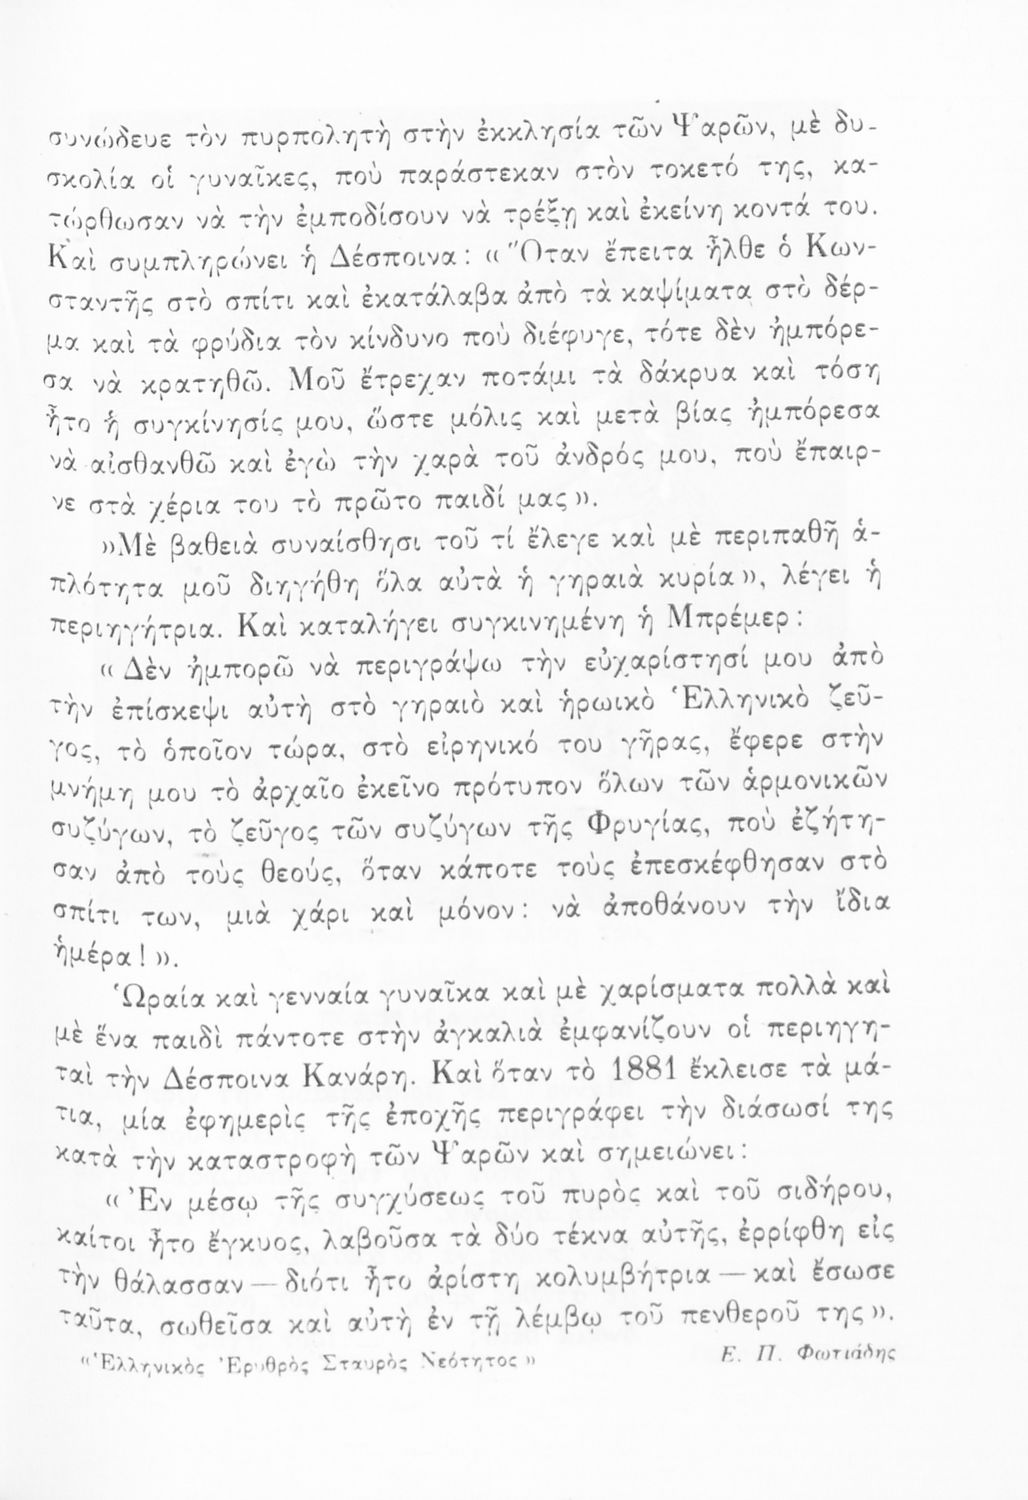 συνώδευε τὸν πυρπολητὴ στὴν ἐκκλησία τῶν Ψαρῶν, μὲ δυ-
σκολία οἱ γυναῖκες, ποὺ παράστεκαν στὸν τοκετό της, κα-
τώρθωσαν νὰ τὴν ἐμποδίσουν νὰ τρέξῃ καὶ ἐκείνη κοντά του.
Καὶ συμπληρώνει ἡ Δέσποινα : « Ὅταν ἔπειτα ἦλθε ὁ Κων-
σταντῆς στὸ σπίτι καὶ ἐκατάλαβα ἀπὸ τὰ καψίματα στὸ δέρ-
μα καὶ τὰ φρύδια τὸν κίνδυνο ποὺ διέφυγε, τότε δὲν ἠμπόρε-
σα νὰ κρατηθῶ. Μοῦ ἔτρεχαν ποτάμι τὰ δάκρυα καὶ τόση
ἦτο ἡ συγκίνησίς μου, ὥστε μόλις καὶ μετὰ βίας ἠμπόρεσα
νὰ αἰσθανθῶ καὶ ἐγὼ τὴν χαρὰ τοῦ ἀνδρός μου, ποὺ ἔπαιρ-
νε στὰ χέρια του τὸ πρῶτο παιδί μας ».
»Μὲ βαθειὰ συναίσθησι τοῦ τί ἔλεγε καὶ μὲ περιπαθῆ ἁ-
πλότητα μοῦ διηγήθη ὅλα αὐτὰ ἡ γηραιὰ κυρία», λέγει ἡ
περιηγήτρια. Καὶ καταλήγει συγκινημένη ἡ Μπρέμερ :
« Δὲν ἠμπορῶ νὰ περιγράψω τὴν εὐχαρίστησί μου ἀπὸ
τὴν ἐπίσκεψι αὐτὴ στὸ γηραιὸ καὶ ἡρωικὸ Ἑλληνικὸ ζεῦ-
γος, τὸ ὁποῖον τώρα, στὸ εἰρηνικό του γῆρας, ἔφερε στὴν
μνήμη μου τὸ ἀρχαῖο ἐκεῖνο πρότυπον ὅλων τῶν ἁρμονικῶν
συζύγων, τὸ ζεῦγος τῶν συζύγων τῆς Φρυγίας, ποὺ ἐζήτη-
σαν ἀπὸ τοὺς θεούς, ὅταν κάποτε τοὺς ἐπεσκέφθησαν στὸ
σπίτι των, μιὰ χάρι καὶ μόνον : νὰ ἀποθάνουν τὴν ἴδια
ἡμέρα ! ».
Ὡραία καὶ γενναία γυναῖκα καὶ μὲ χαρίσματα πολλὰ καὶ
μὲ ἕνα παιδὶ πάντοτε στὴν ἀγκαλιὰ ἐμφανίζουν οἱ περιηγη-
ταὶ τὴν Δέσποινα Κανάρη. Καὶ ὅταν τὸ 1881 ἔκλεισε τὰ μά-
τια, μία ἐφημερὶς τῆς ἐποχῆς περιγράφει τὴν διάσωσί της
κατὰ τὴν καταστροφὴ τῶν Ψαρῶν καὶ σημειώνει :
« Ἐν μέσῳ τῆς συγχύσεως τοῦ πυρὸς καὶ τοῦ σιδήρου,
καίτοι ἦτο ἔγκυος, λαβοῦσα τὰ δύο τέκνα αὐτῆς, ἐρρίφθη εἰς
τὴν θάλασσαν — διότι ἦτο ἀρίστη κολυμβήτρια — καὶ ἔσωσε
ταῦτα, σωθεῖσα καὶ αὐτὴ ἐν τῇ λέμβῳ τοῦ πενθεροῦ της ».
«Ἑλληνικὸς Ἐρυθρὸς Σταυρὸς Νεότητος » Ε. Π. Φωτιάδης